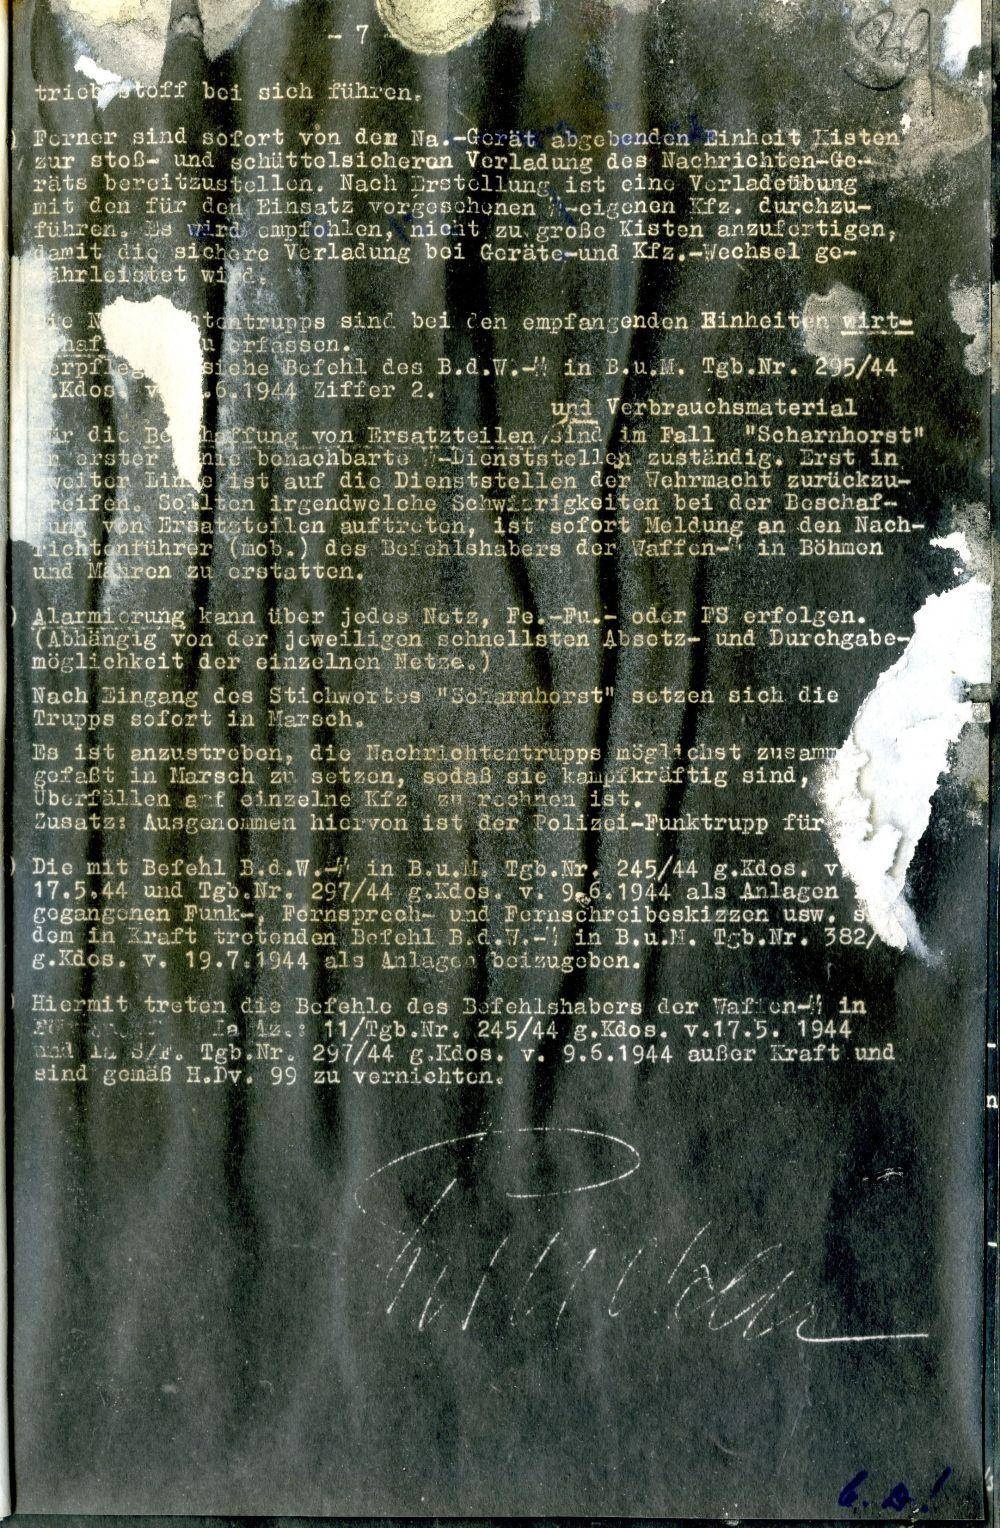 - 7
39
stoff bei sich führen.
) Ferner sind sofort von den Na.-Gerät abgebenden Einheit Kisten
zur stoß- und schüttelsicheren Verladung des Nachrichten-Ge-
räts bereitzustellen. Nach Erstellung ist eine Verladeübung
mit den für den Einsatz vorgesehenen ᛋᛋ-eigenen Kfz. durchzu-
führen. Es wird empfohlen, nicht zu große Kisten anzufertigen,
damit die sichere Verladung bei Geräte-und Kfz.-Wechsel ge-
währleistet wird.
tentrupps sind bei den empfangenden Einheiten wirt-
erfassen.
siehe Befehl des B.d.W.-ᛋᛋ in B.u.M. Tgb.Nr. 295/44
.Kdos. v .6.1944 Ziffer 2.
und Verbrauchsmaterial
die Be haffung von Ersatzteilen/sind im Fall "Scharnhorst"
erster benachbarte ᛋᛋ-Dienststellen zuständig. Erst in
weiter Linie ist auf die Dienststellen der Wehrmacht zurückzu-
reifen. Sollten irgendwelche Schwierigkeiten bei der Beschaf-
fung von Ersatzteilen auftreten, ist sofort Meldung an den Nach-
richtenführer (mob.) des Befehlshabers der Waffen-ᛋᛋ in Böhmen
und Mähren zu erstatten.
) Alarmierung kann über jedes Netz, Fe.-Fu.- oder FS erfolgen.
(Abhängig von der jeweiligen schnellsten Absetz- und Durchgabe-
möglichkeit der einzelnen Netze.)
Nach Eingang des Stichwortes "Scharnhorst" setzen sich die
Trupps sofort in Marsch.
Es ist anzustreben, die Nachrichtentrupps möglichst zusamm
gefaßt in Marsch zu setzen, sodaß sie kampfkräftig sind,
Überfällen auf einzelne Kfz. zu rechnen ist.
Zusatz: Ausgenommen hiervon ist der Polizei-Funktrupp für
) Die mit Befehl B.d.W.-ᛋᛋ in B.u.M. Tgb.Nr. 245/44 g.Kdos. v
17.5.44 und Tgb.Nr. 297/44 g.Kdos. v. 9.6.1944 als Anlagen
gegangenen Funk-, Fernsprech- und Fernschreibeskizzen usw. s
dem in Kraft tretenden Befehl B.d.W.-ᛋᛋ in B.u.M. Tgb.Nr. 382/
g.Kdos. v. 19.7.1944 als Anlagen beizugeben.
) Hiermit treten die Befehle des Befehlshabers der Waffen-ᛋᛋ in
Ia Az.: 11/Tgb.Nr. 245/44 g.Kdos. v.17.5. 1944
und Ia Tgb.Nr. 297/44 g.Kdos. v. 9.6.1944 außer Kraft und
sind gemäß H.Dv. 99 zu vernichten.